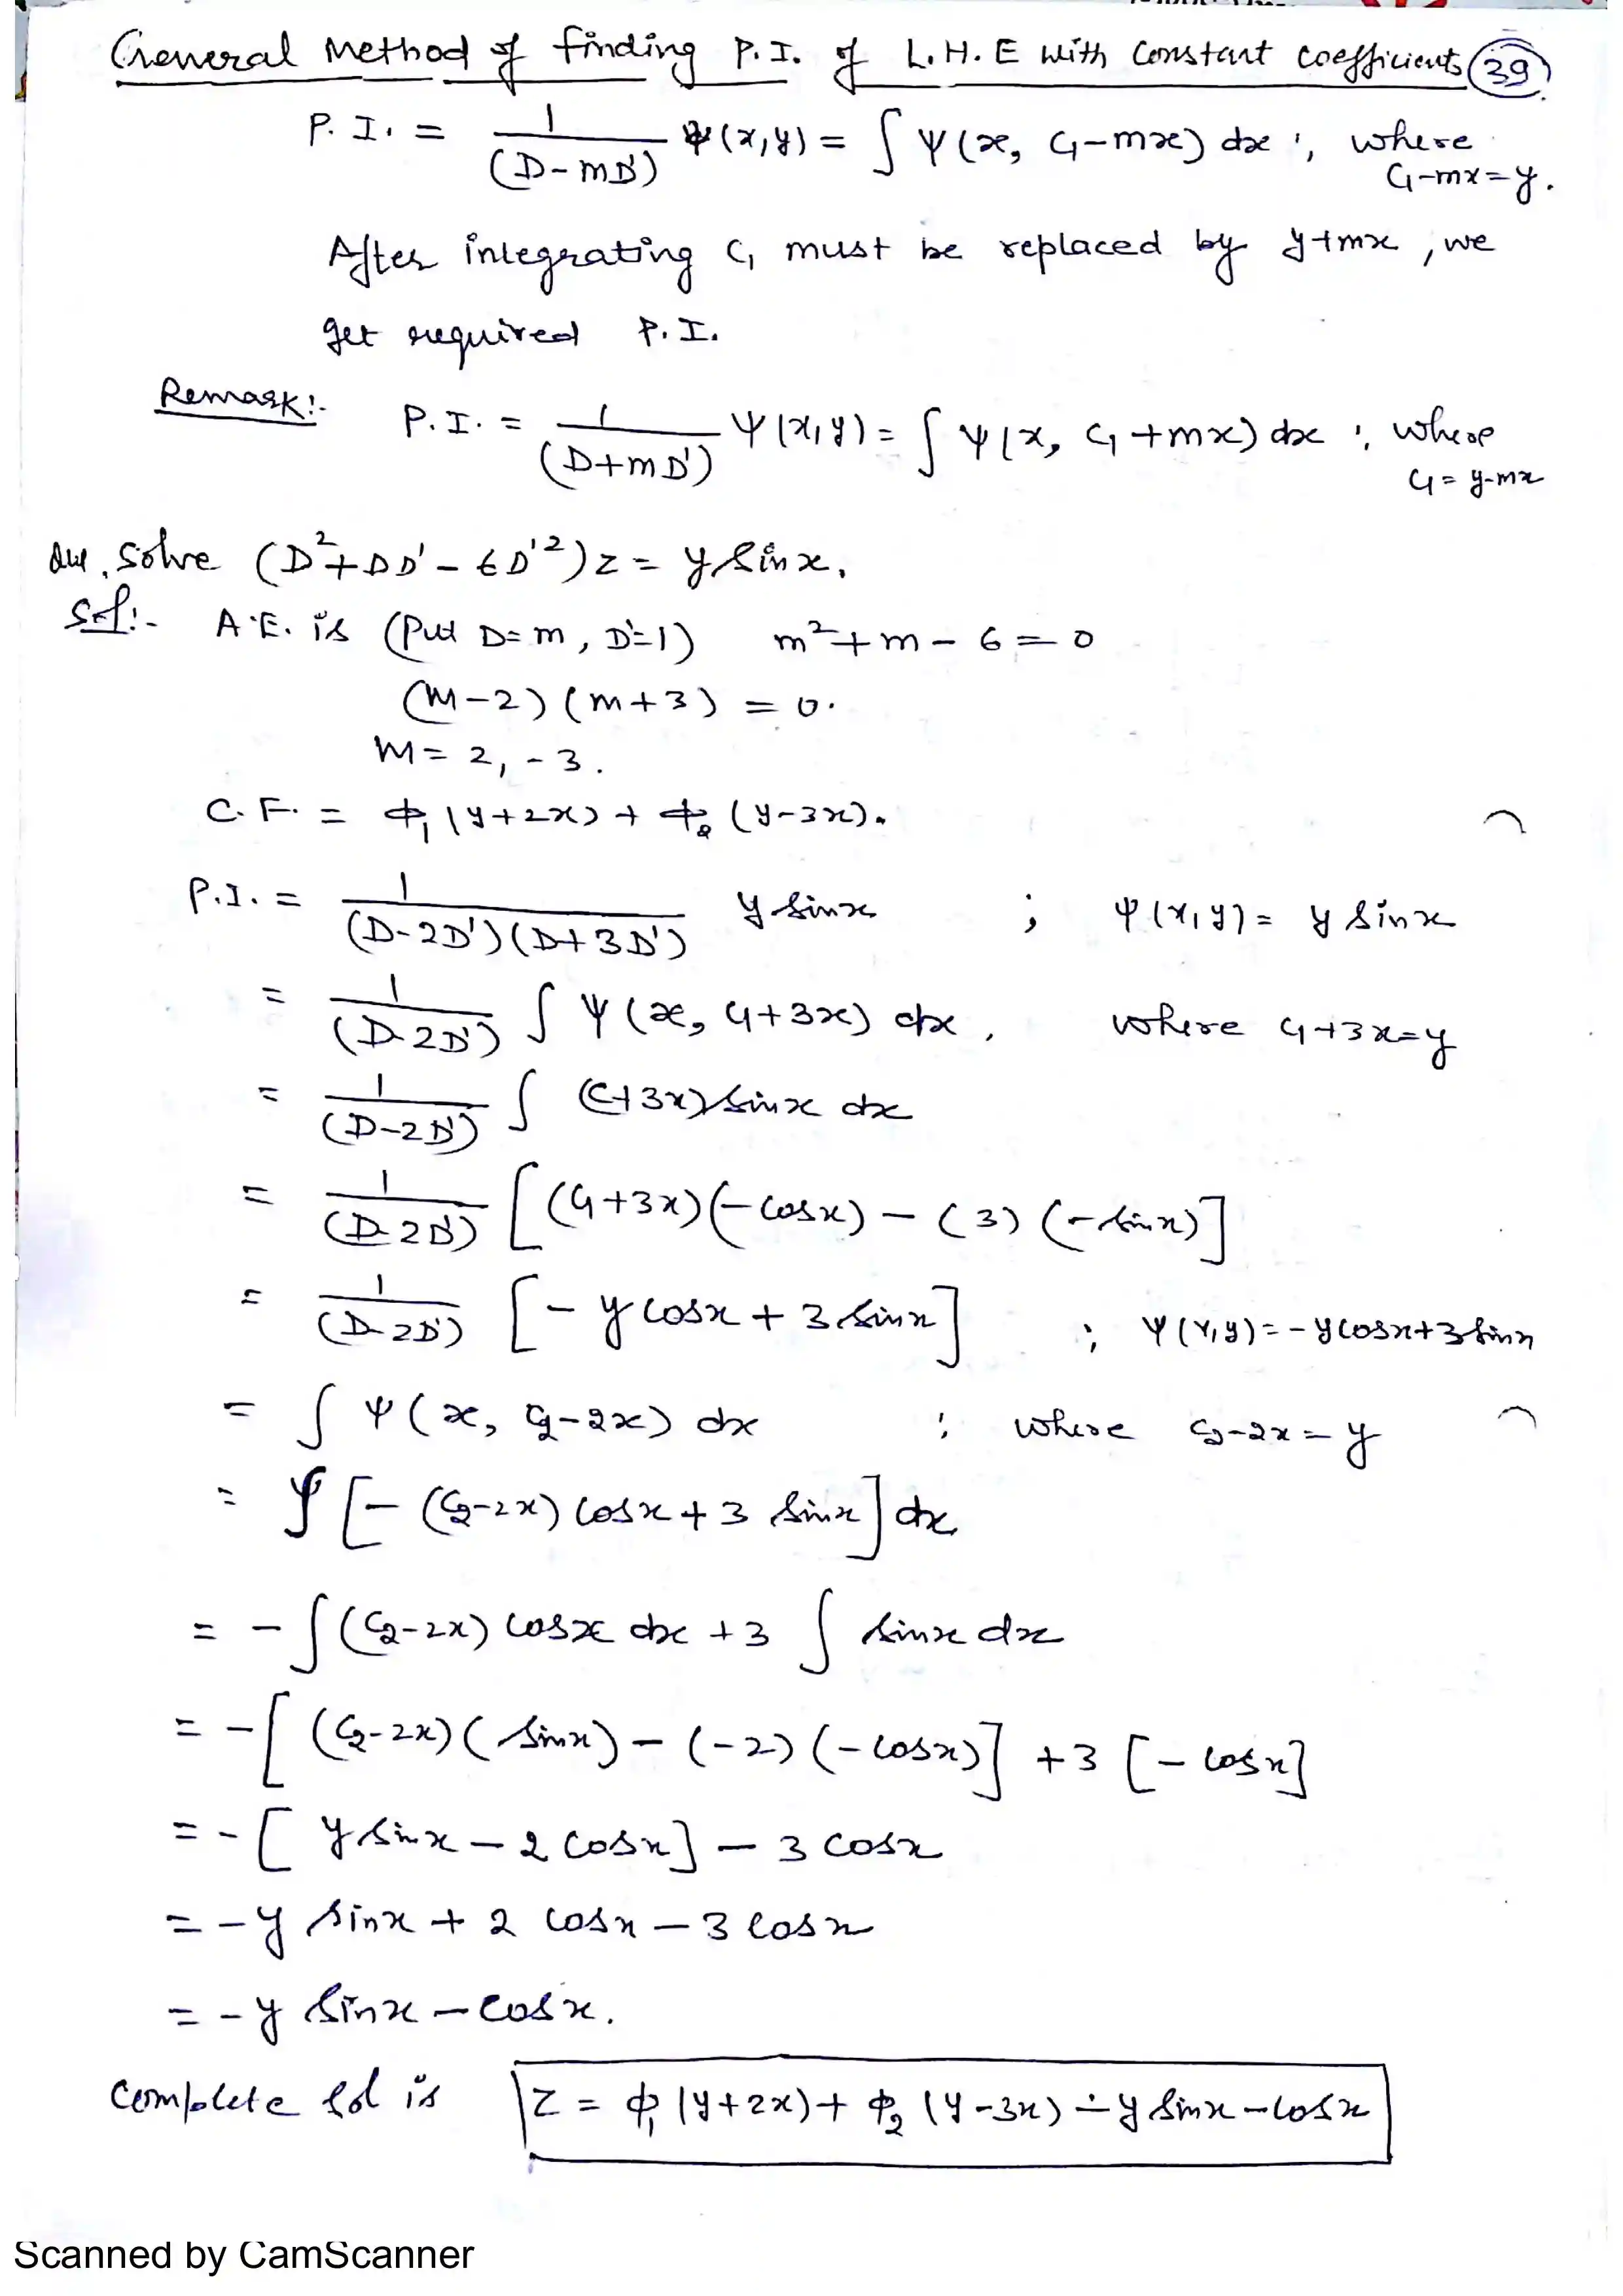 General Method of finding P.I. of L.H.E with constant coefficients (39)
P.I. = 1/(D-mD') ψ(x,y) = ∫ψ(x, C₁-mx) dx ; where C₁-mx=y.
After integrating C₁ must be replaced by y+mx, we
get required P.I.
Remark:- P.I. = 1/(D+mD') ψ(x,y) = ∫ψ(x, C₁+mx) dx ; where C₁ = y-mx
Que. Solve (D²+DD'-6D'²)z = y sinx.
Sol:- A.E. is (Put D=m, D'=1) m²+m-6=0
(m-2)(m+3) = 0.
m = 2, -3.
C.F. = ϕ₁(y+2x) + ϕ₂(y-3x).
P.I. = 1/((D-2D')(D+3D')) y sinx ; ψ(x,y) = y sinx
= 1/(D-2D') ∫ψ(x, C₁+3x) dx, where C₁+3x=y
= 1/(D-2D') ∫ (C+3x) sinx dx
= 1/(D-2D') [(C₁+3x)(-cosx) - (3)(-sinx)]
= 1/(D-2D') [-y cosx + 3 sinx] ; ψ(x,y) = -y cosx+3 sinx
= ∫ψ(x, C₂-2x) dx ; where C₂-2x = y
= ∫[-(C₂-2x) cosx + 3 sinx] dx
= -∫(C₂-2x) cosx dx + 3 ∫ sinx dx
= -[(C₂-2x)(sinx) - (-2)(-cosx)] + 3[-cosx]
= -[y sinx - 2 cosx] - 3 cosx
= -y sinx + 2 cosx - 3 cosx
= -y sinx - cosx.
Complete sol is z = ϕ₁(y+2x) + ϕ₂(y-3x) - y sinx - cosx
Scanned by CamScanner